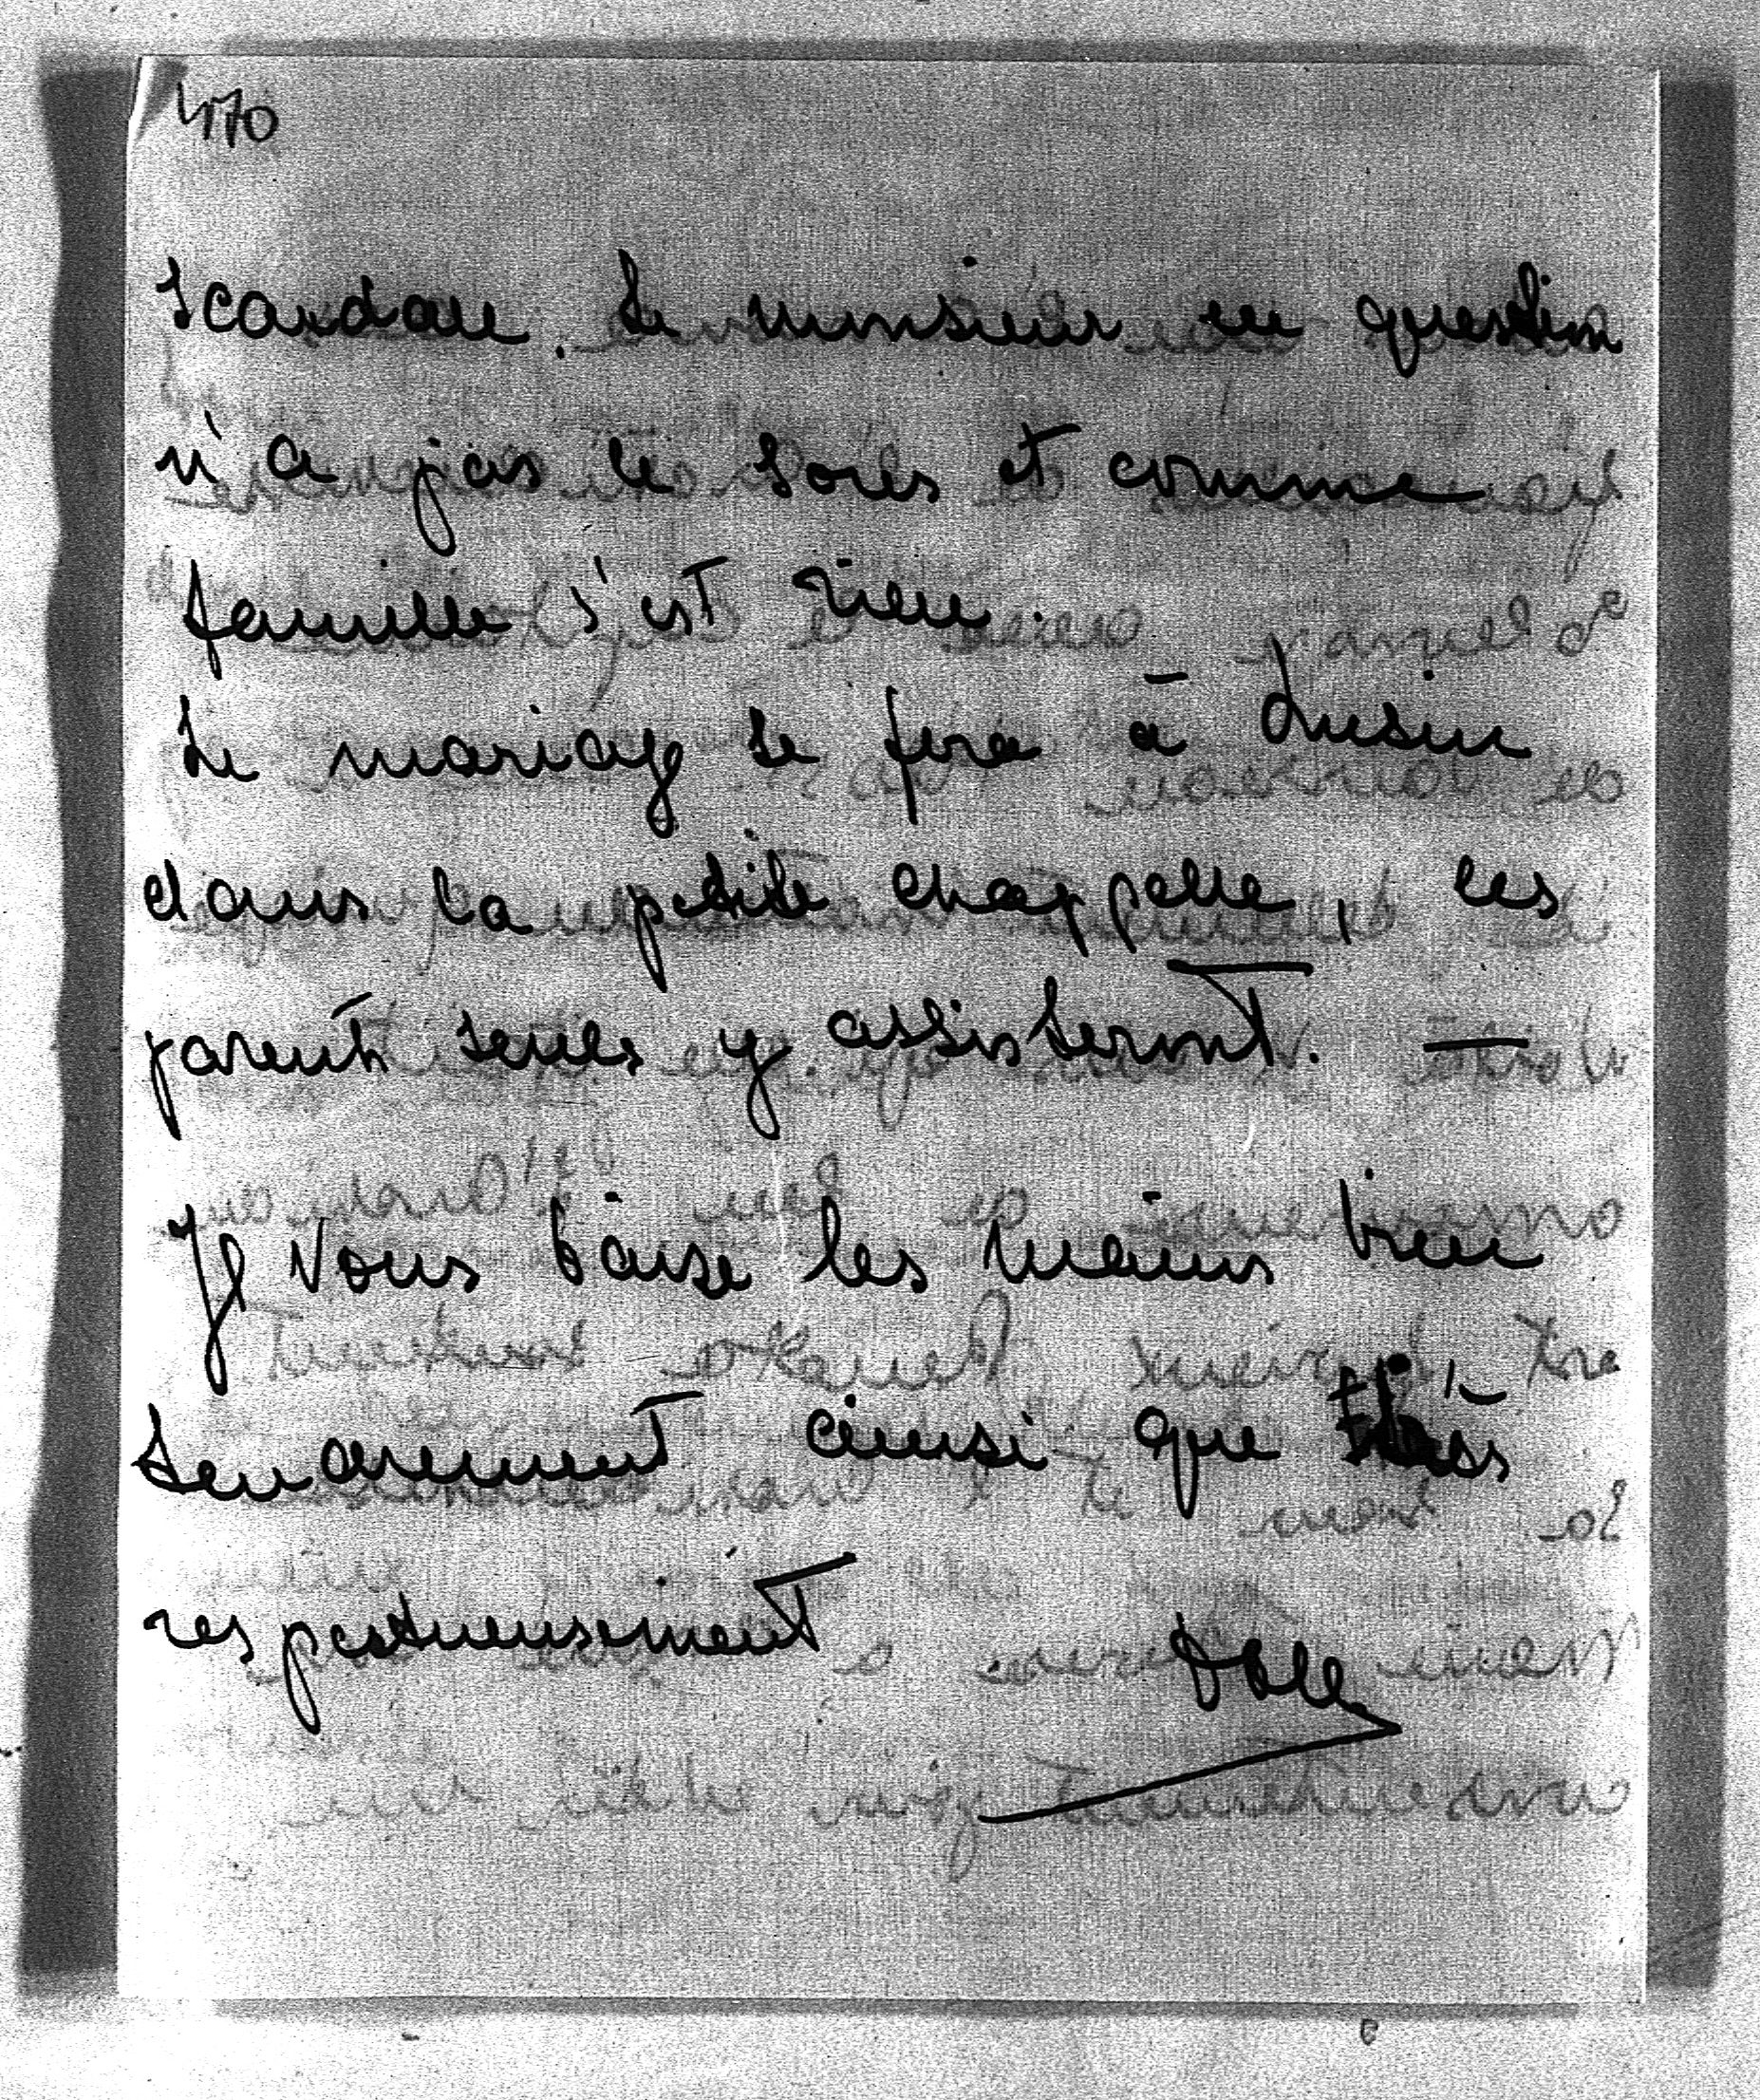 470
Scandale. Le monsieur en question
n'a pas le sous et comme
famille s'est rien.
Le mariage se fera à Lusin
dans la petite chappelle, les
parents seules y assisteront. —
Je vous baise les mains bien
tendrement ainsi que très
respectueusement